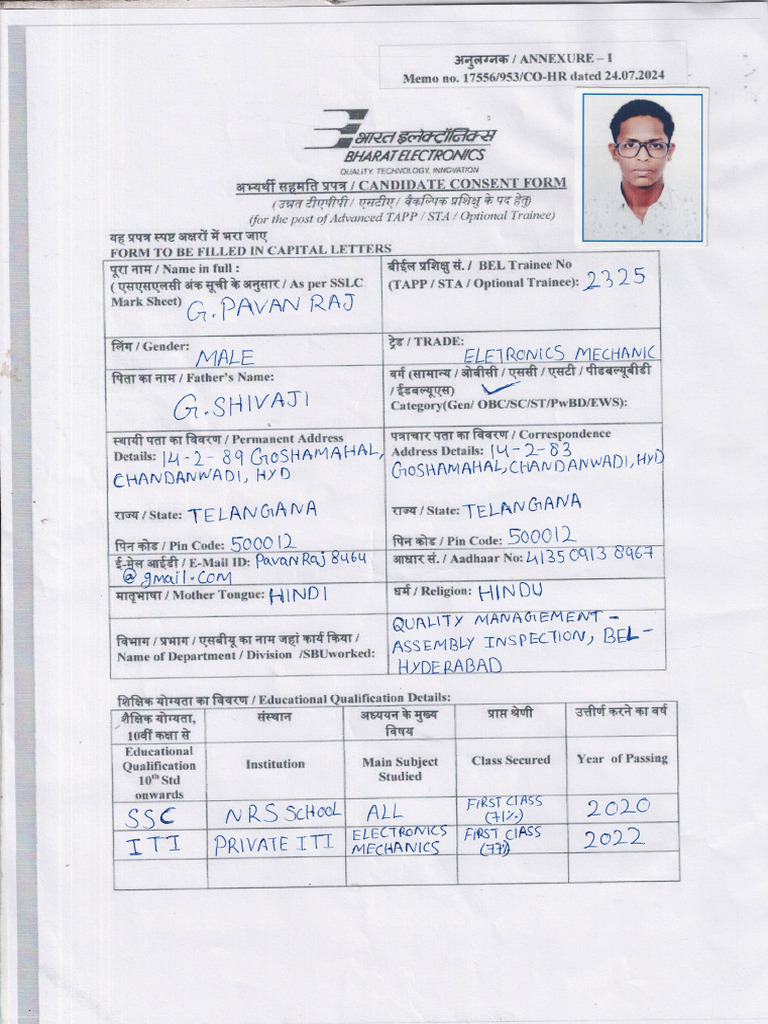 अनुलग्नक / ANNEXURE – I
Memo no. 17556/953/CO-HR dated 24.07.2024
भारत इलेक्ट्रॉनिक्स
BHARAT ELECTRONICS
QUALITY. TECHNOLOGY. INNOVATION
अभ्यर्थी सहमति प्रपत्र / CANDIDATE CONSENT FORM
(उन्नत टीएपीपी / एसटीए / वैकल्पिक प्रशिक्षु के पद हेतु)
(for the post of Advanced TAPP / STA / Optional Trainee)
यह प्रपत्र स्पष्ट अक्षरों में भरा जाए
FORM TO BE FILLED IN CAPITAL LETTERS
पूरा नाम / Name in full :
( एसएसएलसी अंक सूची के अनुसार / As per SSLC
Mark Sheet) G. PAVAN RAJ
बीईएल प्रशिक्षु सं. / BEL Trainee No
(TAPP / STA / Optional Trainee): 2325
लिंग / Gender: MALE
ट्रेड / TRADE: ELETRONICS MECHANIC
पिता का नाम / Father's Name:
G. SHIVAJI
वर्ग (सामान्य / ओबीसी / एससी / एसटी / पीडबल्यूबीडी
/ ईडबल्यूएस)
Category(Gen/ OBC/SC/ST/PwBD/EWS):
स्थायी पता का विवरण / Permanent Address
Details: 14-2-89 GOSHAMAHAL,
CHANDANWADI, HYD
राज्य / State: TELANGANA
पिन कोड / Pin Code: 500012
पत्राचार पता का विवरण / Correspondence
Address Details: 14-2-83
GOSHAMAHAL, CHANDANWADI, HYD
राज्य / State: TELANGANA
पिन कोड / Pin Code: 500012
ई-मेल आईडी / E-Mail ID: PavanRaj8464
@gmail.com
आधार सं. / Aadhaar No: 4135 0913 8967
मातृभाषा / Mother Tongue: HINDI
धर्म / Religion: HINDU
विभाग / प्रभाग / एसबीयू का नाम जहां कार्य किया /
Name of Department / Division /SBUworked:
QUALITY MANAGEMENT -
ASSEMBLY INSPECTION, BEL-
HYDERABAD
शिक्षिक योग्यता का विवरण / Educational Qualification Details:
शैक्षिक योग्यता,
10वीं कक्षा से
संस्थान
अध्ययन के मुख्य
विषय
प्राप्त श्रेणी
उत्तीर्ण करने का वर्ष
Educational
Qualification
10th Std
onwards
Institution
Main Subject
Studied
Class Secured
Year of Passing
SSC
NRS SCHOOL
ALL
FIRST CLASS
(71%)
2020
ITI
PRIVATE ITI
ELECTRONICS
MECHANICS
FIRST CLASS
(77%)
2022